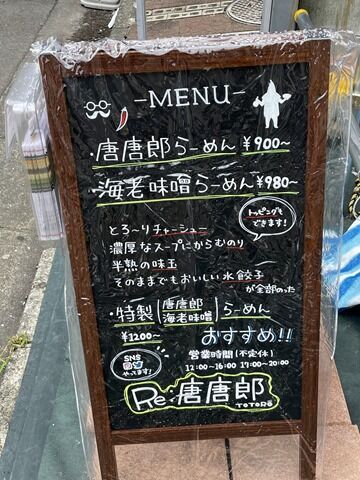 -MENU-
・唐唐郎らーめん ¥900～
・海老味噌らーめん ¥980～
トッピングも
できます!
とろ～りチャーシュー
濃厚なスープにからむのり
半熟の味玉
そのままでもおいしい水餃子
が全部のった
・特製 唐唐郎 らーめん
海老味噌
¥1200～
おすすめ!!
SNS
やってます!
営業時間(不定休)
12:00～16:00 17:00～20:00
Re:唐唐郎
TOTORO